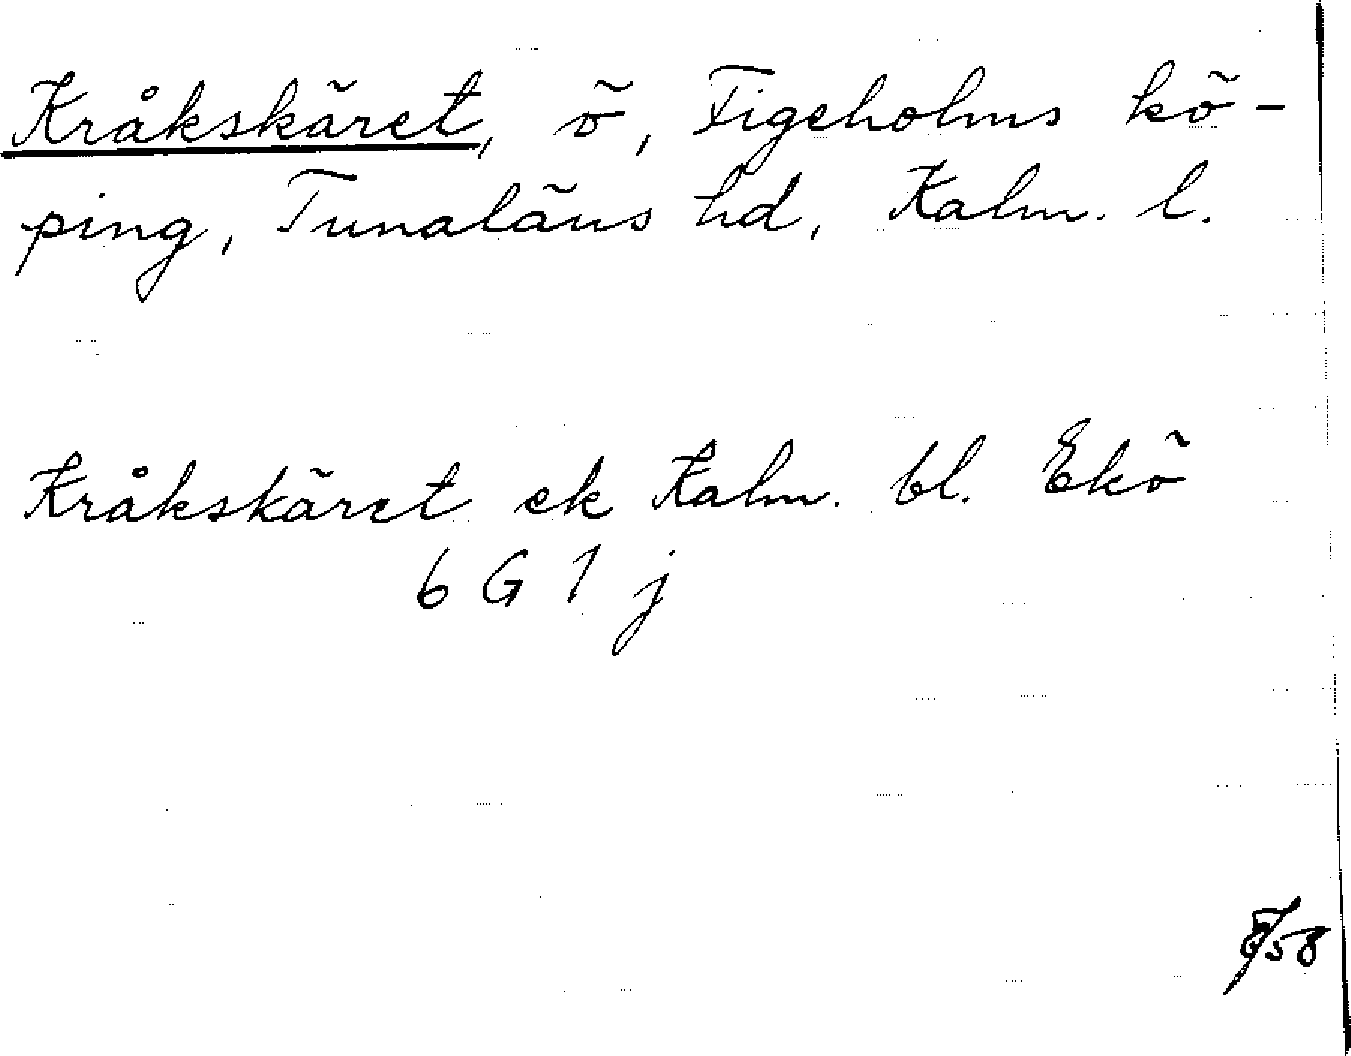 Kråkskäret, ö, Figeholms kö-
ping, Tunaläns hd, Kalm. l.
Kråkskäret ek Kalm. bl. Ekö
6 G 1 j